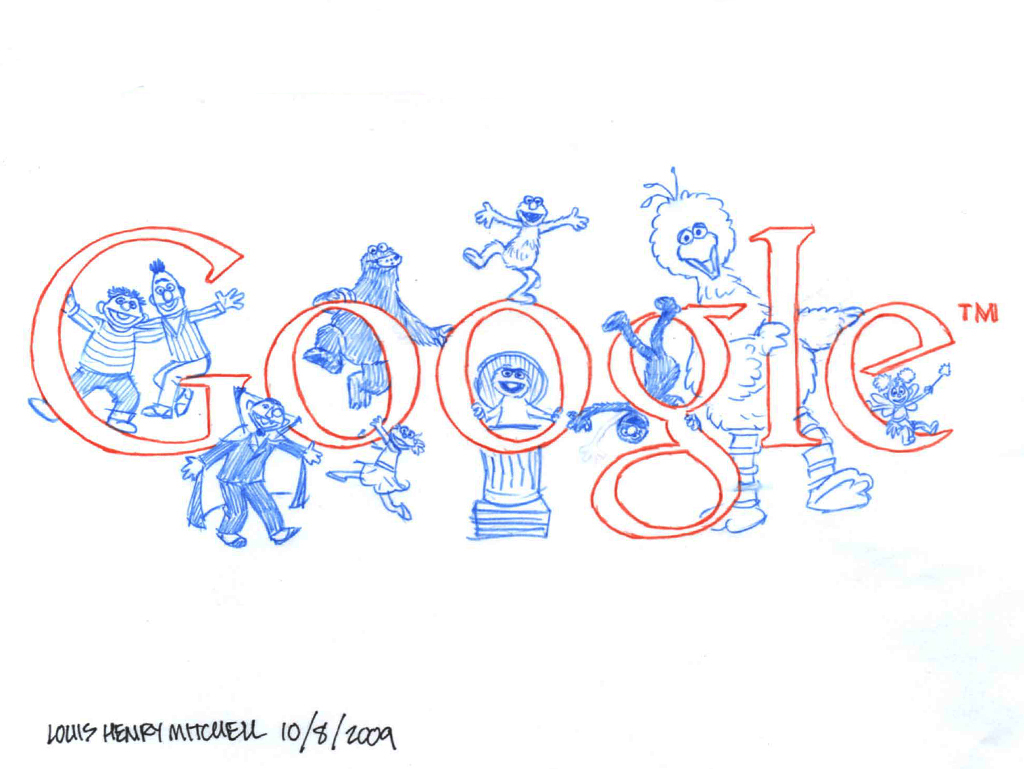 Google™
LOUIS HENRY MITCHELL 10/8/2009